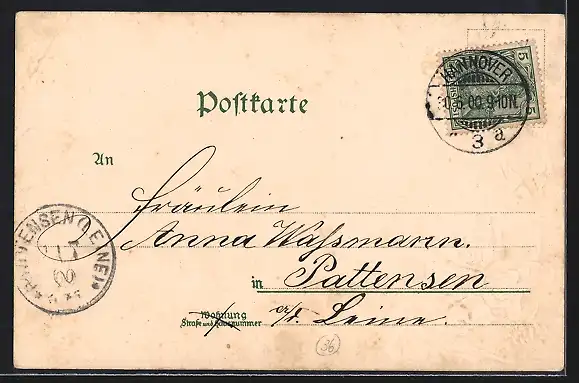 HANNOVER
9-10N.
3 a
5
5
Postkarte
An
Fräulein
Anna Waßmann.
in Pattensen
Wohnung
Straße und Hausnummer
a/d. Leine.
PATTENSEN (LEINE)
36